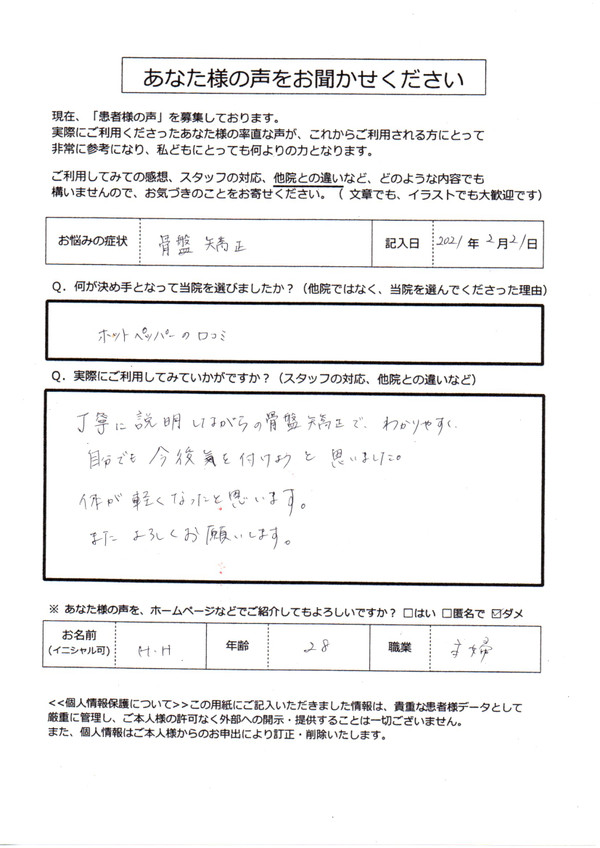 あなた様の声をお聞かせください
現在、「患者様の声」を募集しております。
実際にご利用くださったあなた様の率直な声が、これからご利用される方にとって
非常に参考になり、私どもにとっても何よりの力となります。
ご利用してみての感想、スタッフの対応、他院との違いなど、どのような内容でも
構いませんので、お気づきのことをお寄せください。（ 文章でも、イラストでも大歓迎です）
お悩みの症状 骨盤矯正 記入日 2021年 2月21日
Q．何が決め手となって当院を選びましたか？（他院ではなく、当院を選んでくださった理由）
ホットペッパーの口コミ
Q．実際にご利用してみていかがですか？（スタッフの対応、他院との違いなど）
丁寧に説明しながらの骨盤矯正で、わかりやすく、
自分でも今後気を付けようと思いました。
体が軽くなったと思います。
またよろしくお願いします。
※ あなた様の声を、ホームページなどでご紹介してもよろしいですか？ □はい □匿名で ☑ダメ
お名前 H.H 年齢 28 職業 主婦
(イニシャル可)
<<個人情報保護について>>この用紙にご記入いただきました情報は、貴重な患者様データとして
厳重に管理し、ご本人様の許可なく外部への開示・提供することは一切ございません。
また、個人情報はご本人様からのお申出により訂正・削除いたします。